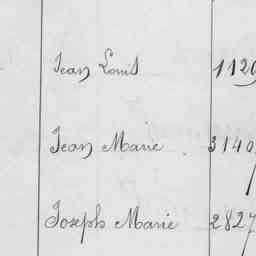 Jean Louis 1120
Jean Marie 3140
Joseph Marie 2827